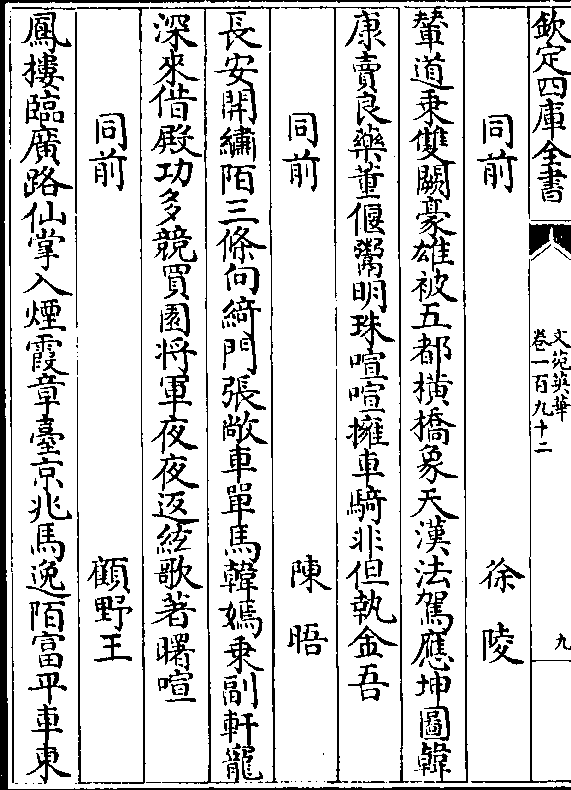 欽定四庫全書
文苑英華
卷一百九十二
九
同前 徐陵
輦道乘雙闕豪雄被五都橫橋象天漢法駕應坤圖韓
康賣良藥董偃鬻明珠喧喧擁車騎非但執金吾
同前 陳晤
長安開繡陌三條向綺門張敞車單馬韓嫣乘副軒寵
深來借殿功多競買園将軍夜夜返絃歌著曙喧
同前 顧野王
鳳樓臨廣路仙掌入煙霞章臺京兆馬逸陌富平車東